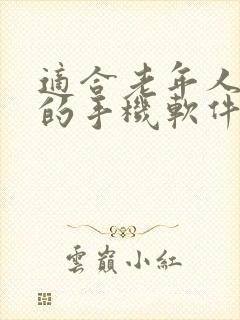 適合老年人
的手機軟件
雲巔小紅